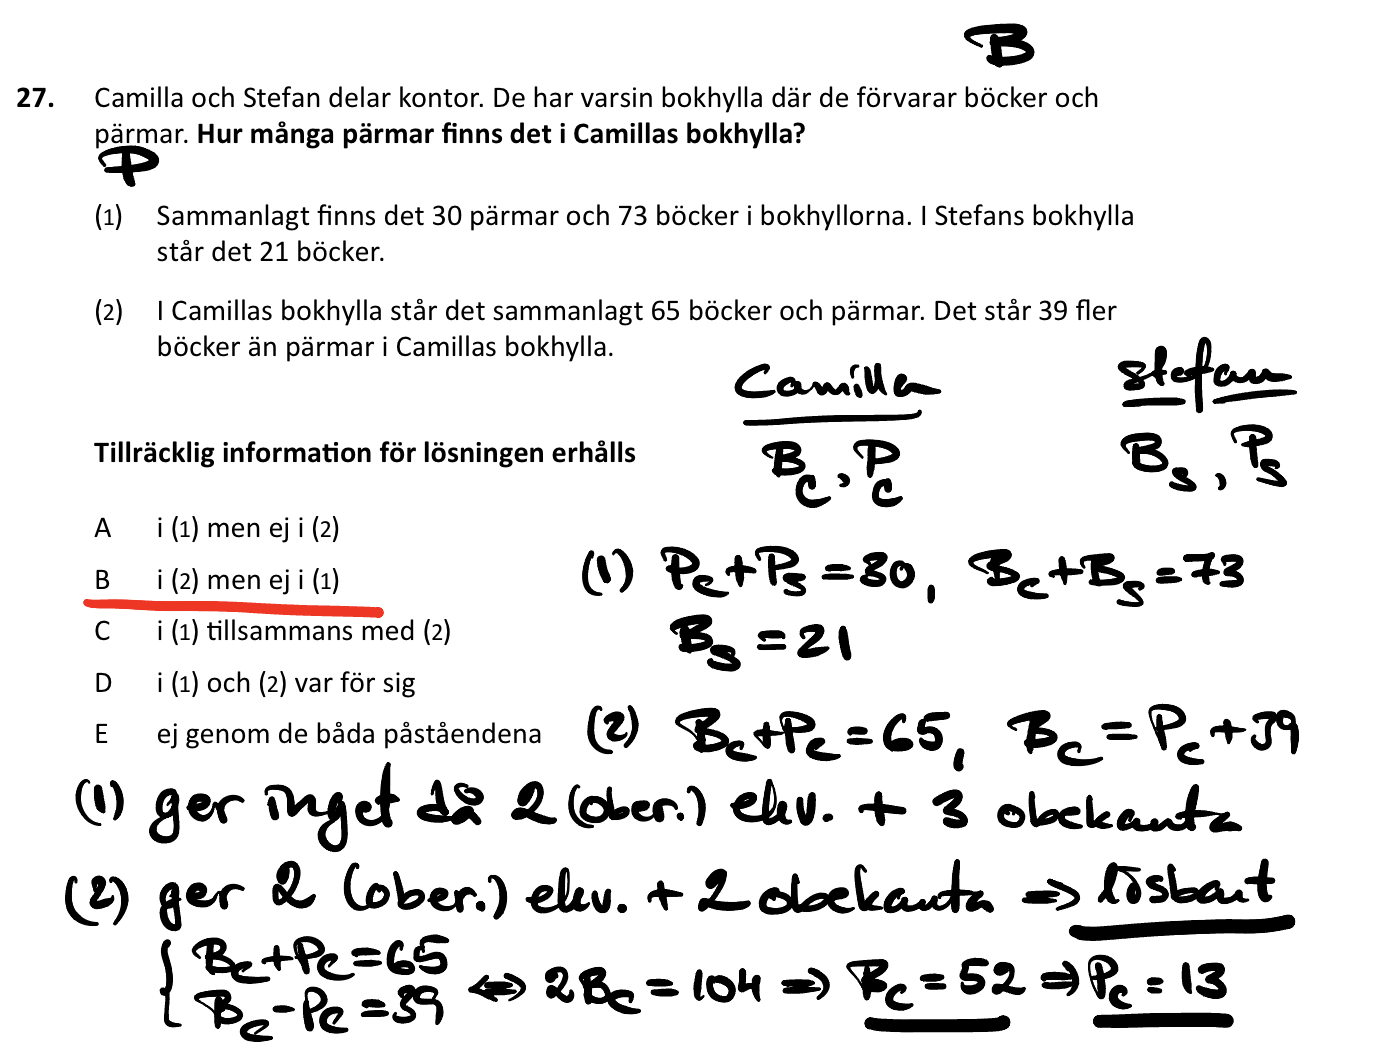 B
27. Camilla och Stefan delar kontor. De har varsin bokhylla där de förvarar böcker och
pärmar. Hur många pärmar finns det i Camillas bokhylla?
P
(1) Sammanlagt finns det 30 pärmar och 73 böcker i bokhyllorna. I Stefans bokhylla
står det 21 böcker.
(2) I Camillas bokhylla står det sammanlagt 65 böcker och pärmar. Det står 39 fler
böcker än pärmar i Camillas bokhylla.
Camilla Stefan
B_C, P_C B_S, P_S
Tillräcklig information för lösningen erhålls
A i (1) men ej i (2)
B i (2) men ej i (1)
C i (1) tillsammans med (2)
D i (1) och (2) var för sig
E ej genom de båda påståendena
(1) P_C + P_S = 30, B_C + B_S = 73
B_S = 21
(2) B_C + P_C = 65, B_C = P_C + 39
(1) ger inget då 2 (ober.) ekv. + 3 obekanta
(2) ger 2 (ober.) ekv. + 2 obekanta ⇒ lösbart
B_C + P_C = 65
B_C - P_C = 39 ⇔ 2B_C = 104 ⇒ B_C = 52 ⇒ P_C = 13